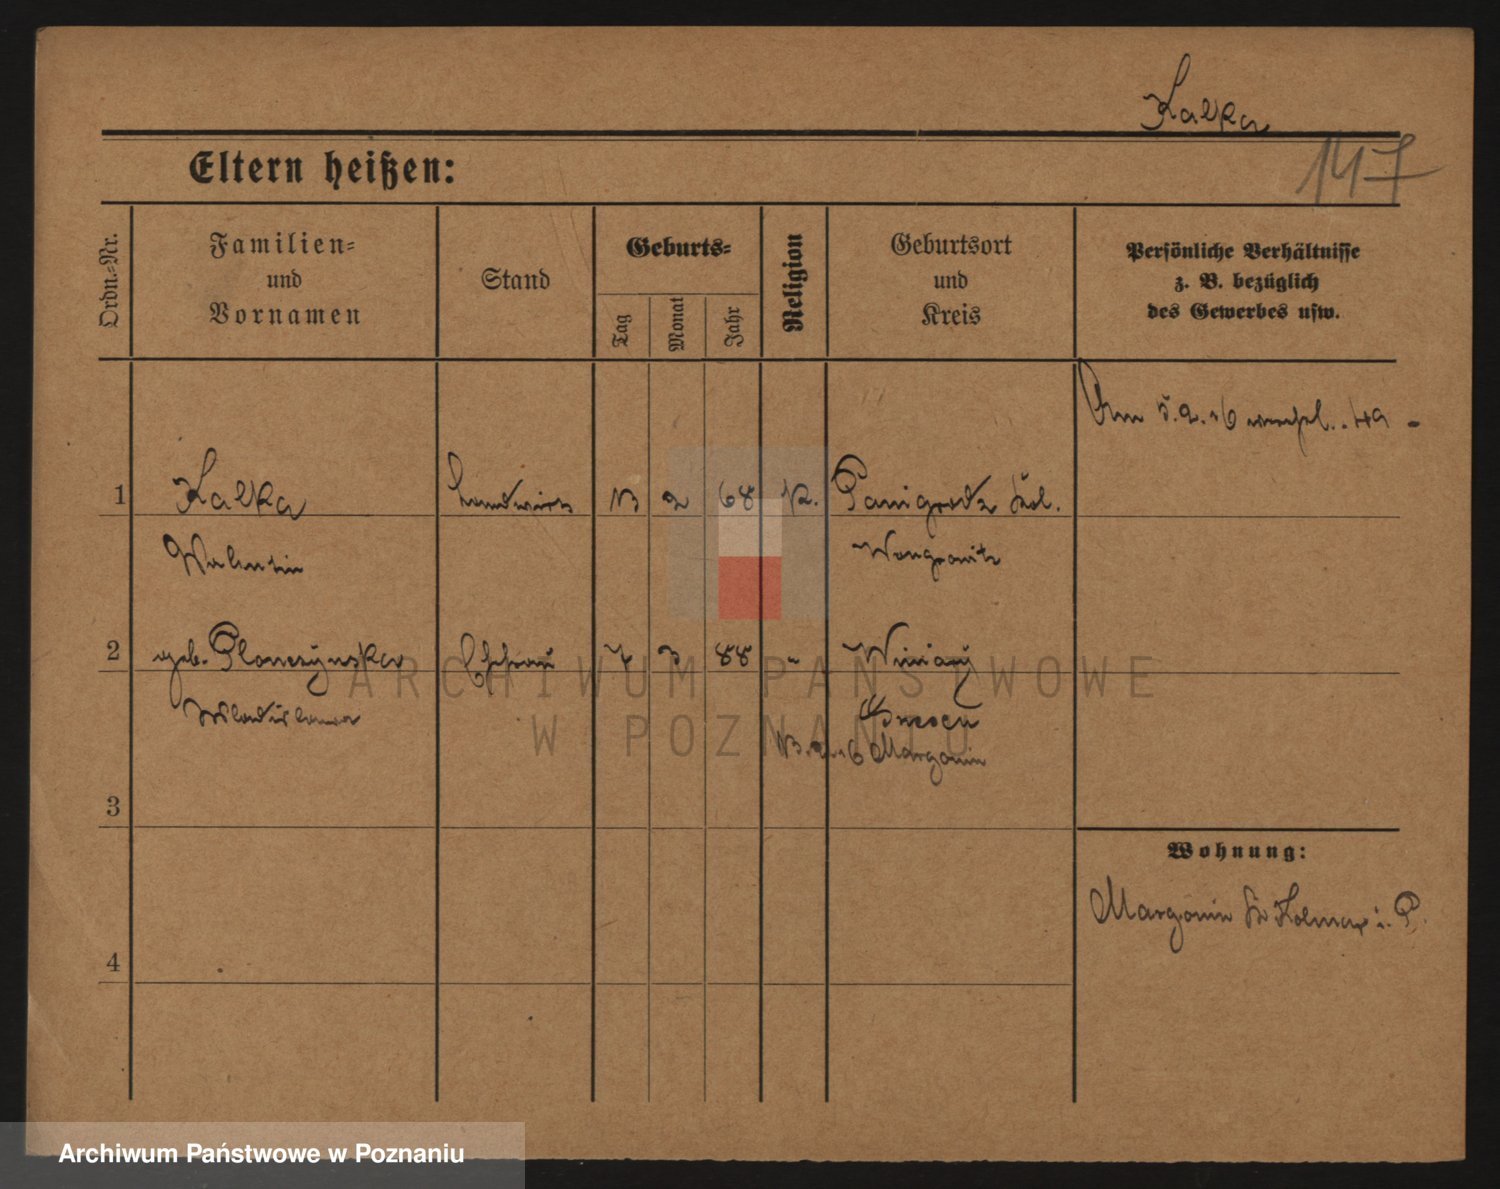 Kalka
147
Eltern heißen:
Ordn.-Nr.
Familien-
und
Vornamen
Stand
Geburts-
Tag
Monat
Jahr
Religion
Geburtsort
und
Kreis
Persönliche Verhältnisse
z. B. bezüglich
des Gewerbes usw.
Am 5.2.16
1 Kalka Landwirt 13 2 68 K. Panigrodz
Valentin Wongrowitz
2 geb. Plonczynska Ehefrau 7 3 88 " Winiary
Wladislawa Gnesen
13.2.16 Margonin
3
Wohnung:
Margonin Kr Kolmar i. P.
4
ARCHIWUM PAŃSTWOWE
W POZNANIU
Archiwum Państwowe w Poznaniu